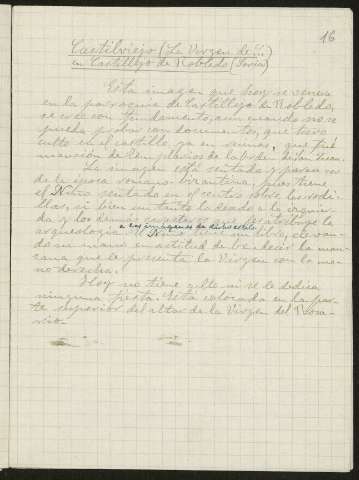 16
Castilviejo (La Virgen de...)
en Castillejo de Robledo (Soria)
Esta imagen que hoy se venera
en la parroquia de Castillejo de Robledo,
se cree con fundamento, aun cuando no se
pueda probar con documentos, que tuvo
culto en el castillo, ya en ruinas, que fué
mansión de Templarios de la orden de San Juan.
La imagen está sentada y parece ser
de la época romano-bizantina, pues tiene
el Niño sentado en el centro sobre las rodi-
llas, si bien un tanto ladeado a la izquier-
da y los demás caracteres que le atribuye la
a las imágenes de dicho estilo
arqueología. El Niño tiene un libro, elevan-
do su mano en actitud de bendecir la man-
zana que le presenta la Virgen con la ma-
no derecha.
Hoy no tiene culto ni se le dedica
ninguna fiesta. Está colocada en la par-
te superior del altar de la Virgen del Rosa-
rio.